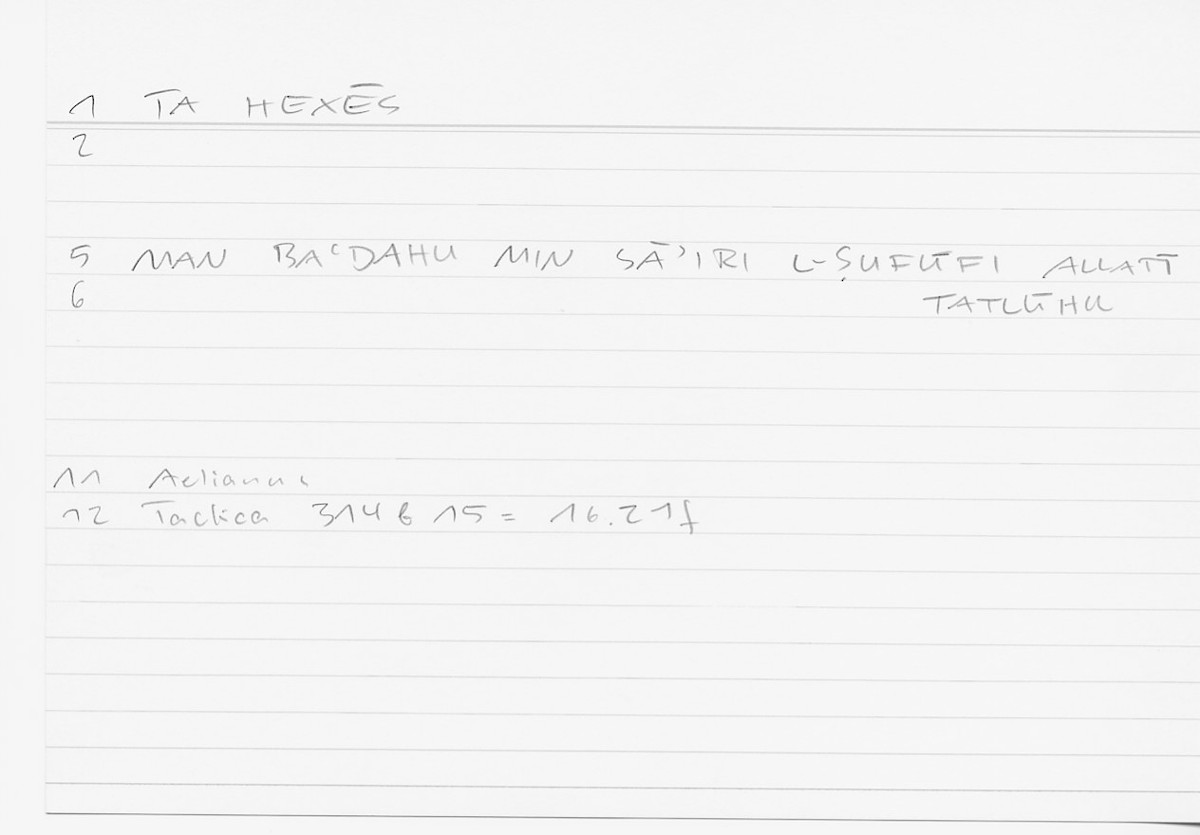 1 TA HEXĒS
2
5 MAN BAʿDAHU MIN SĀʾIRI L-ṢUFŪFI ALLATĪ
6 TATLŪHU
11 Aelianus
12 Tactica 314 b 15 = 16.21f